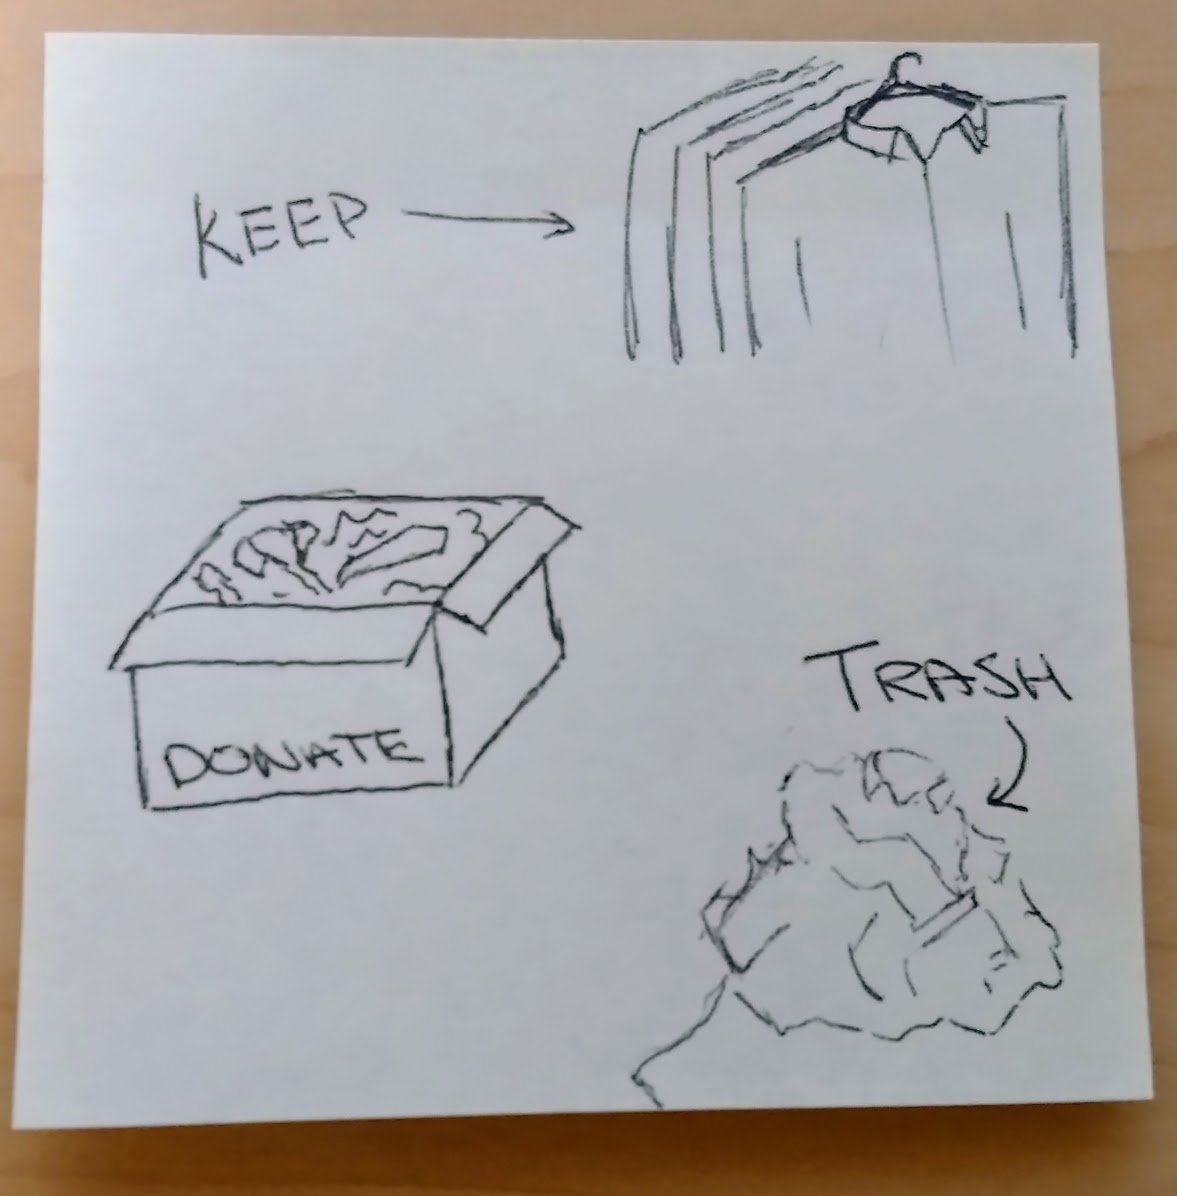 KEEP
DONATE
TRASH